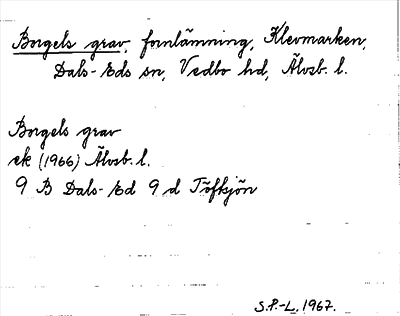 Borgels grav, fornlämning, Klevmarken,
Dals-Eds sn, Vedbo hd, Älvsb. l.
Borgels grav
ek (1966) Älvsb. l.
9 B Dals-Ed 9 d Töfksjön
S.P.-L. 1967.